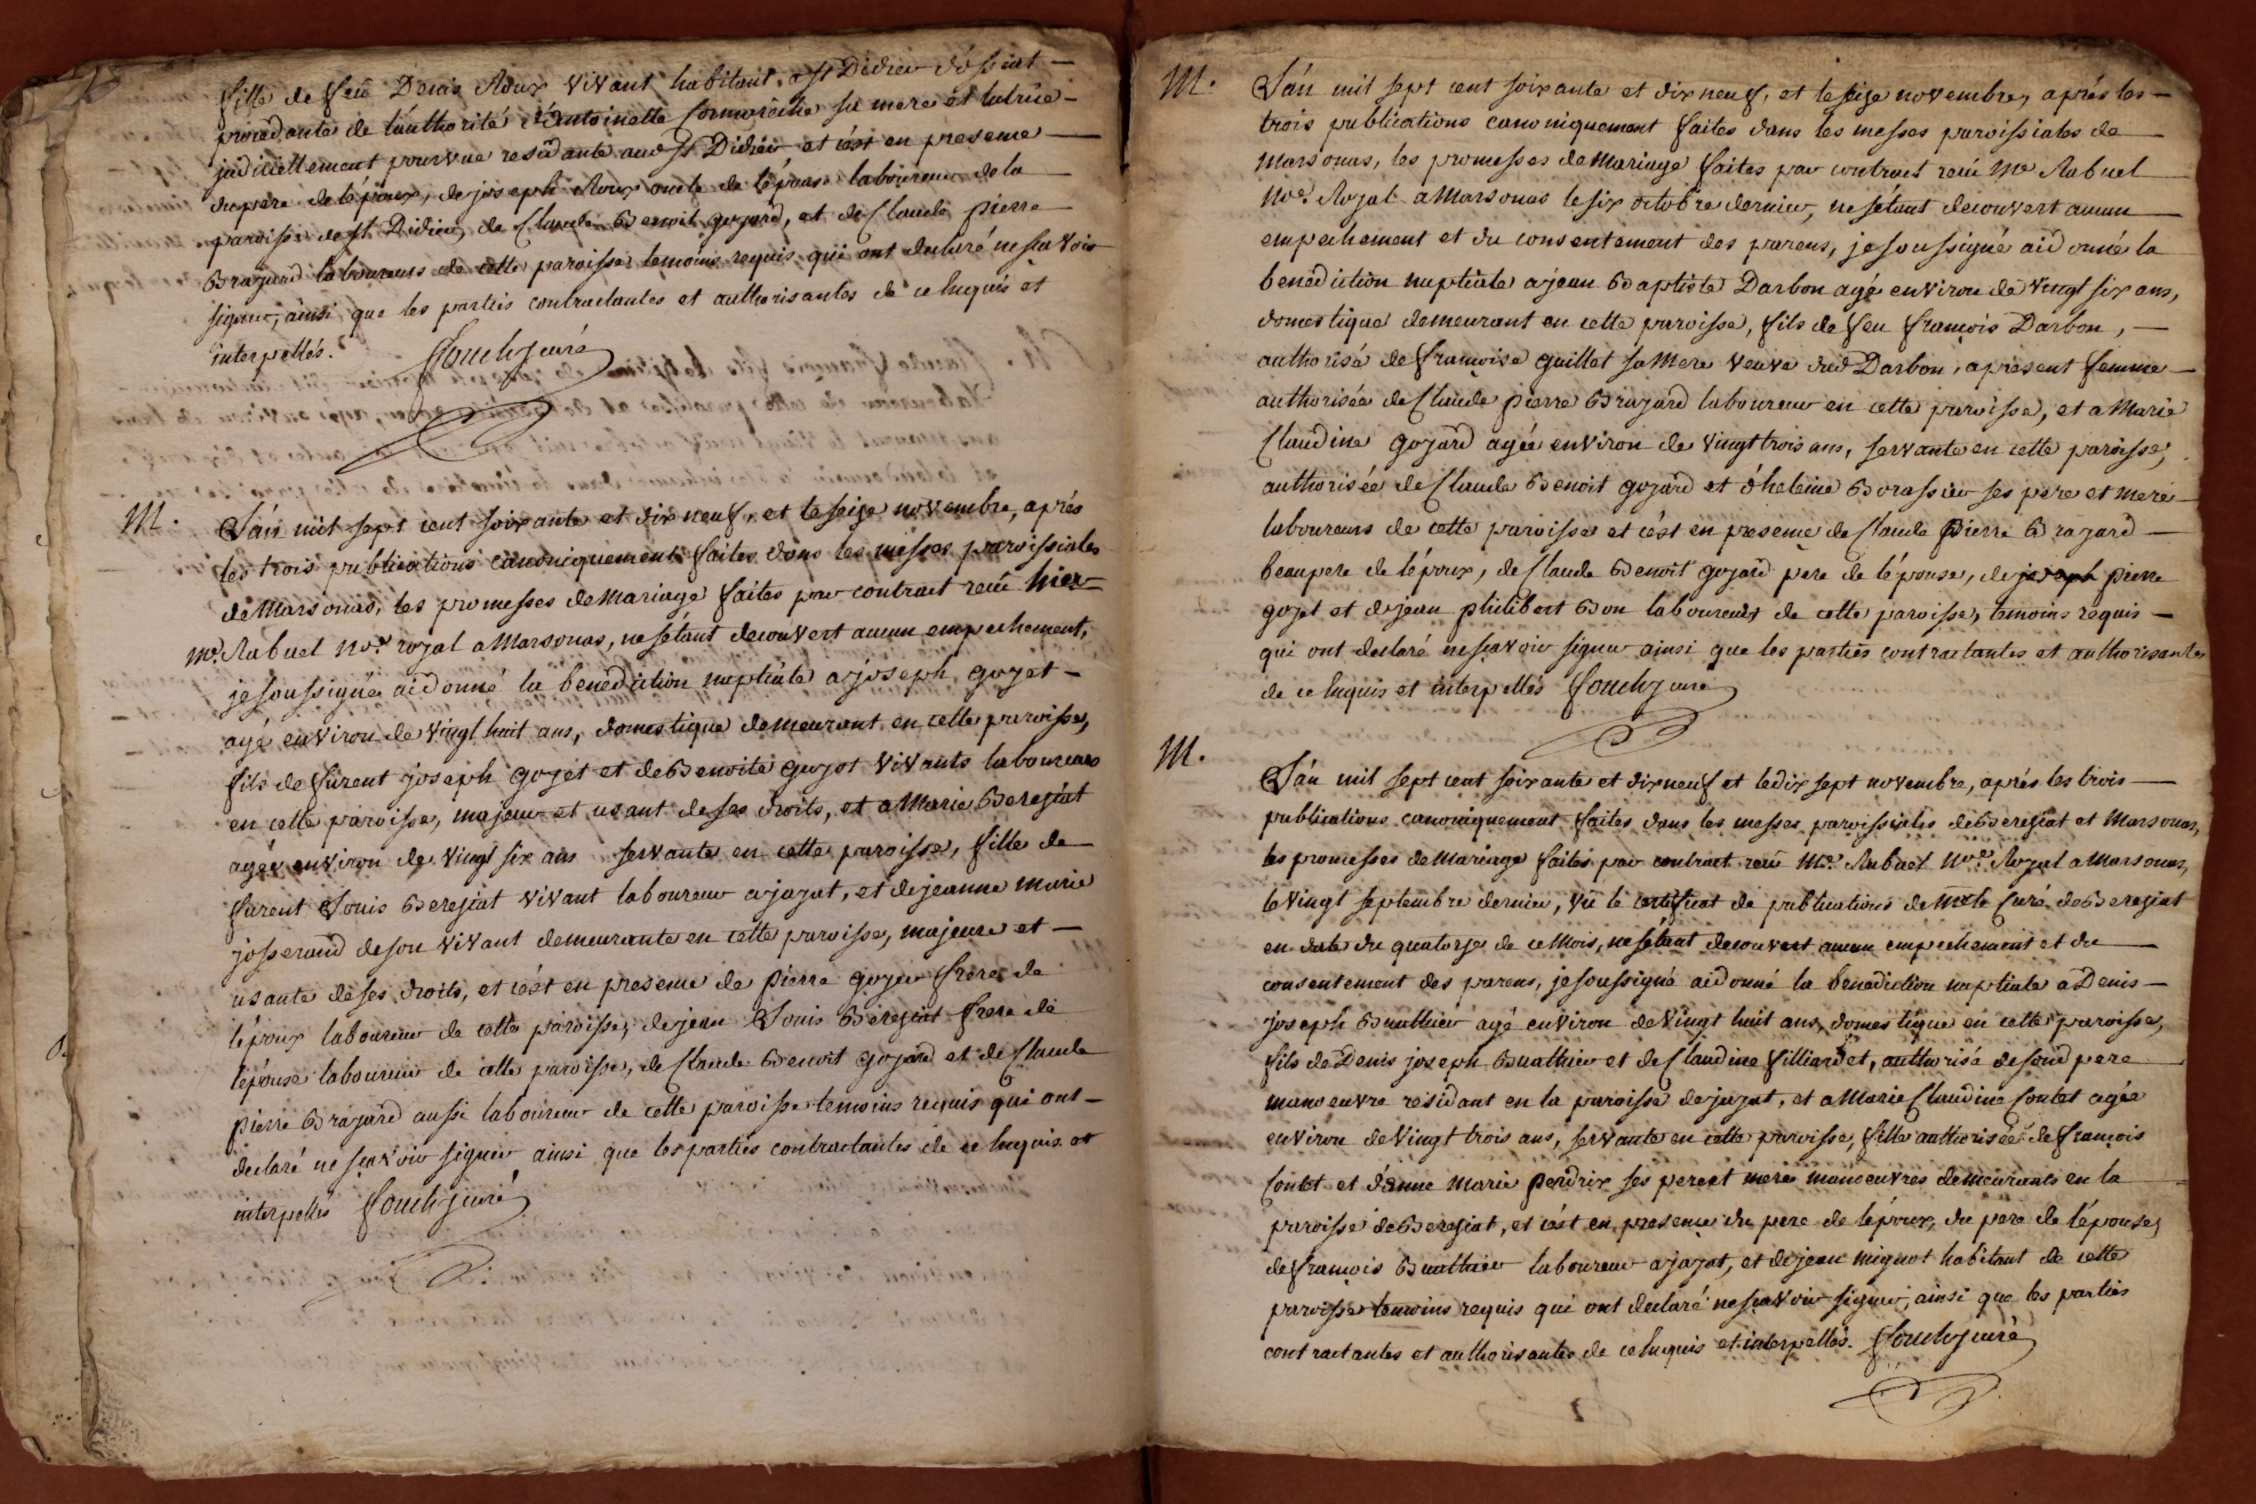 fille de feu Denis Roux vivant habitant a St Didier d'ossiat
procedante de l'authorité d'Antoinette sa mere et tutrice
judiciellement pourvue residante aud St Didier et c'est en presence
du pere de l'époux, de joseph Roux oncle de l'épouse laboureur de la
paroisse de St Didier, de Claude Benoit gojard, et de Claude pierre
Brajard laboureurs de cette paroisse temoins requis qui ont declaré ne scavoir
signer, ainsi que les parties contractantes et authorisantes de ce enquis et
interpellés. curé
M. L'an mil sept cent soixante et dix neuf, et le seize novembre, aprés
les trois publications canoniquement faites dans les messes paroissiales
de Marsonas, les promesses de Mariage faites par contract reçu hier
me. Rabuel no.re royal a Marsonas, ne s'étant decouvert aucun empechement,
je soussigné ai donné la benediction nuptiale a joseph gojet
agé environ de vingt huit ans, domestique demeurant en cette paroisse,
fils de furent joseph gojet et de Benoite gujot vivants laboureurs
en cette paroisse, majeur et usant de ses droits, et a Marie Berejiat
agée environ de vingt six ans servante en cette paroisse, fille de
furent Louis Berejiat vivant laboureur a jajat, et de jeanne marie
josserand de son vivant demeurante en cette paroisse, majeure et
usante de ses droits, et c'est en presence de pierre frere de
l'époux laboureur de cette paroisse, de jean Louis Berejiat frere de
l'épouse laboureur de cette paroisse, de Claude Benoit gojard et de Claude
pierre Brajard aussi laboureur de cette paroisse temoins requis qui ont
declaré ne scavoir signer ainsi que les parties contractantes de ce enquis et
interpellés curé
M. L'an mil sept cent soixante et dix neuf, et le seize novembre, aprés les
trois publications canoniquement faites dans les messes paroissiales de
Marsonas, les promesses de Mariage faites par contract reçu Me Rabuel
No.re Royal a Marsonas le six octobre dernier, ne s'étant decouvert aucun
empechement et du consentement des parens, je soussigné ai donné la
benediction nuptiale a jean Baptiste Darbon agé environ de vingt six ans,
domestique demeurant en cette paroisse, fils de feu françois Darbon,
authorisé de françoise guillet sa Mere veuve dud Darbon, apresent femme
authorisée de Claude pierre Brajard laboureur en cette paroisse, et a Marie
Claudine gojard agée environ de vingt trois ans, servante en cette paroisse,
authorisée de Claude Benoit gojard et d'heleine Borassier ses pere et mere
laboureurs de cette paroisse et c'est en presence de Claude pierre Brajard
beaupere de l'époux, de Claude Benoit gojard pere de l'épouse, de joseph pierre
gojet et de jean philibert Bon laboureurs de cette paroisse, temoins requis
qui ont declaré ne scavoir signer ainsi que les parties contractantes et authorisantes
de ce enquis et interpellés curé
M. L'an mil sept cent soixante et dix neuf et le dix sept novembre, aprés les trois
publications canoniquement faites dans les messes paroissiales de Berejiat et Marsonas,
les promesses de Mariage faites par contract reçu Me. Rabuel No.re Royal a Marsonas,
le vingt septembre dernier, vû le certificat de publications de mr le Curé de Berejiat
en date du quatorze de ce Mois, ne s'étant decouvert aucun empechement et du
consentement des parens, je soussigné ai donné la benediction nuptiale a Denis
joseph Buathier agé environ de vingt huit ans, domestique en cette paroisse,
fils de Denis joseph Buathier et de Claudine filliardet, authorisé de sond pere
manoeuvre residant en la paroisse de jajat, et a Marie Claudine Contet agée
environ de vingt trois ans, servante en cette paroisse, fille authorisée de françois
Contet et d'anne Marie perdrix ses pere et mere manoeuvres demeurants en la
paroisse de Berejiat, et c'est en presence du pere de l'époux, du pere de l'épouse,
de françois Buathier laboureur a jajat, et de jean mignot habitant de cette
paroisse temoins requis qui ont declaré ne scavoir signer, ainsi que les parties
contractantes et authorisantes de ce enquis et interpellés. curé